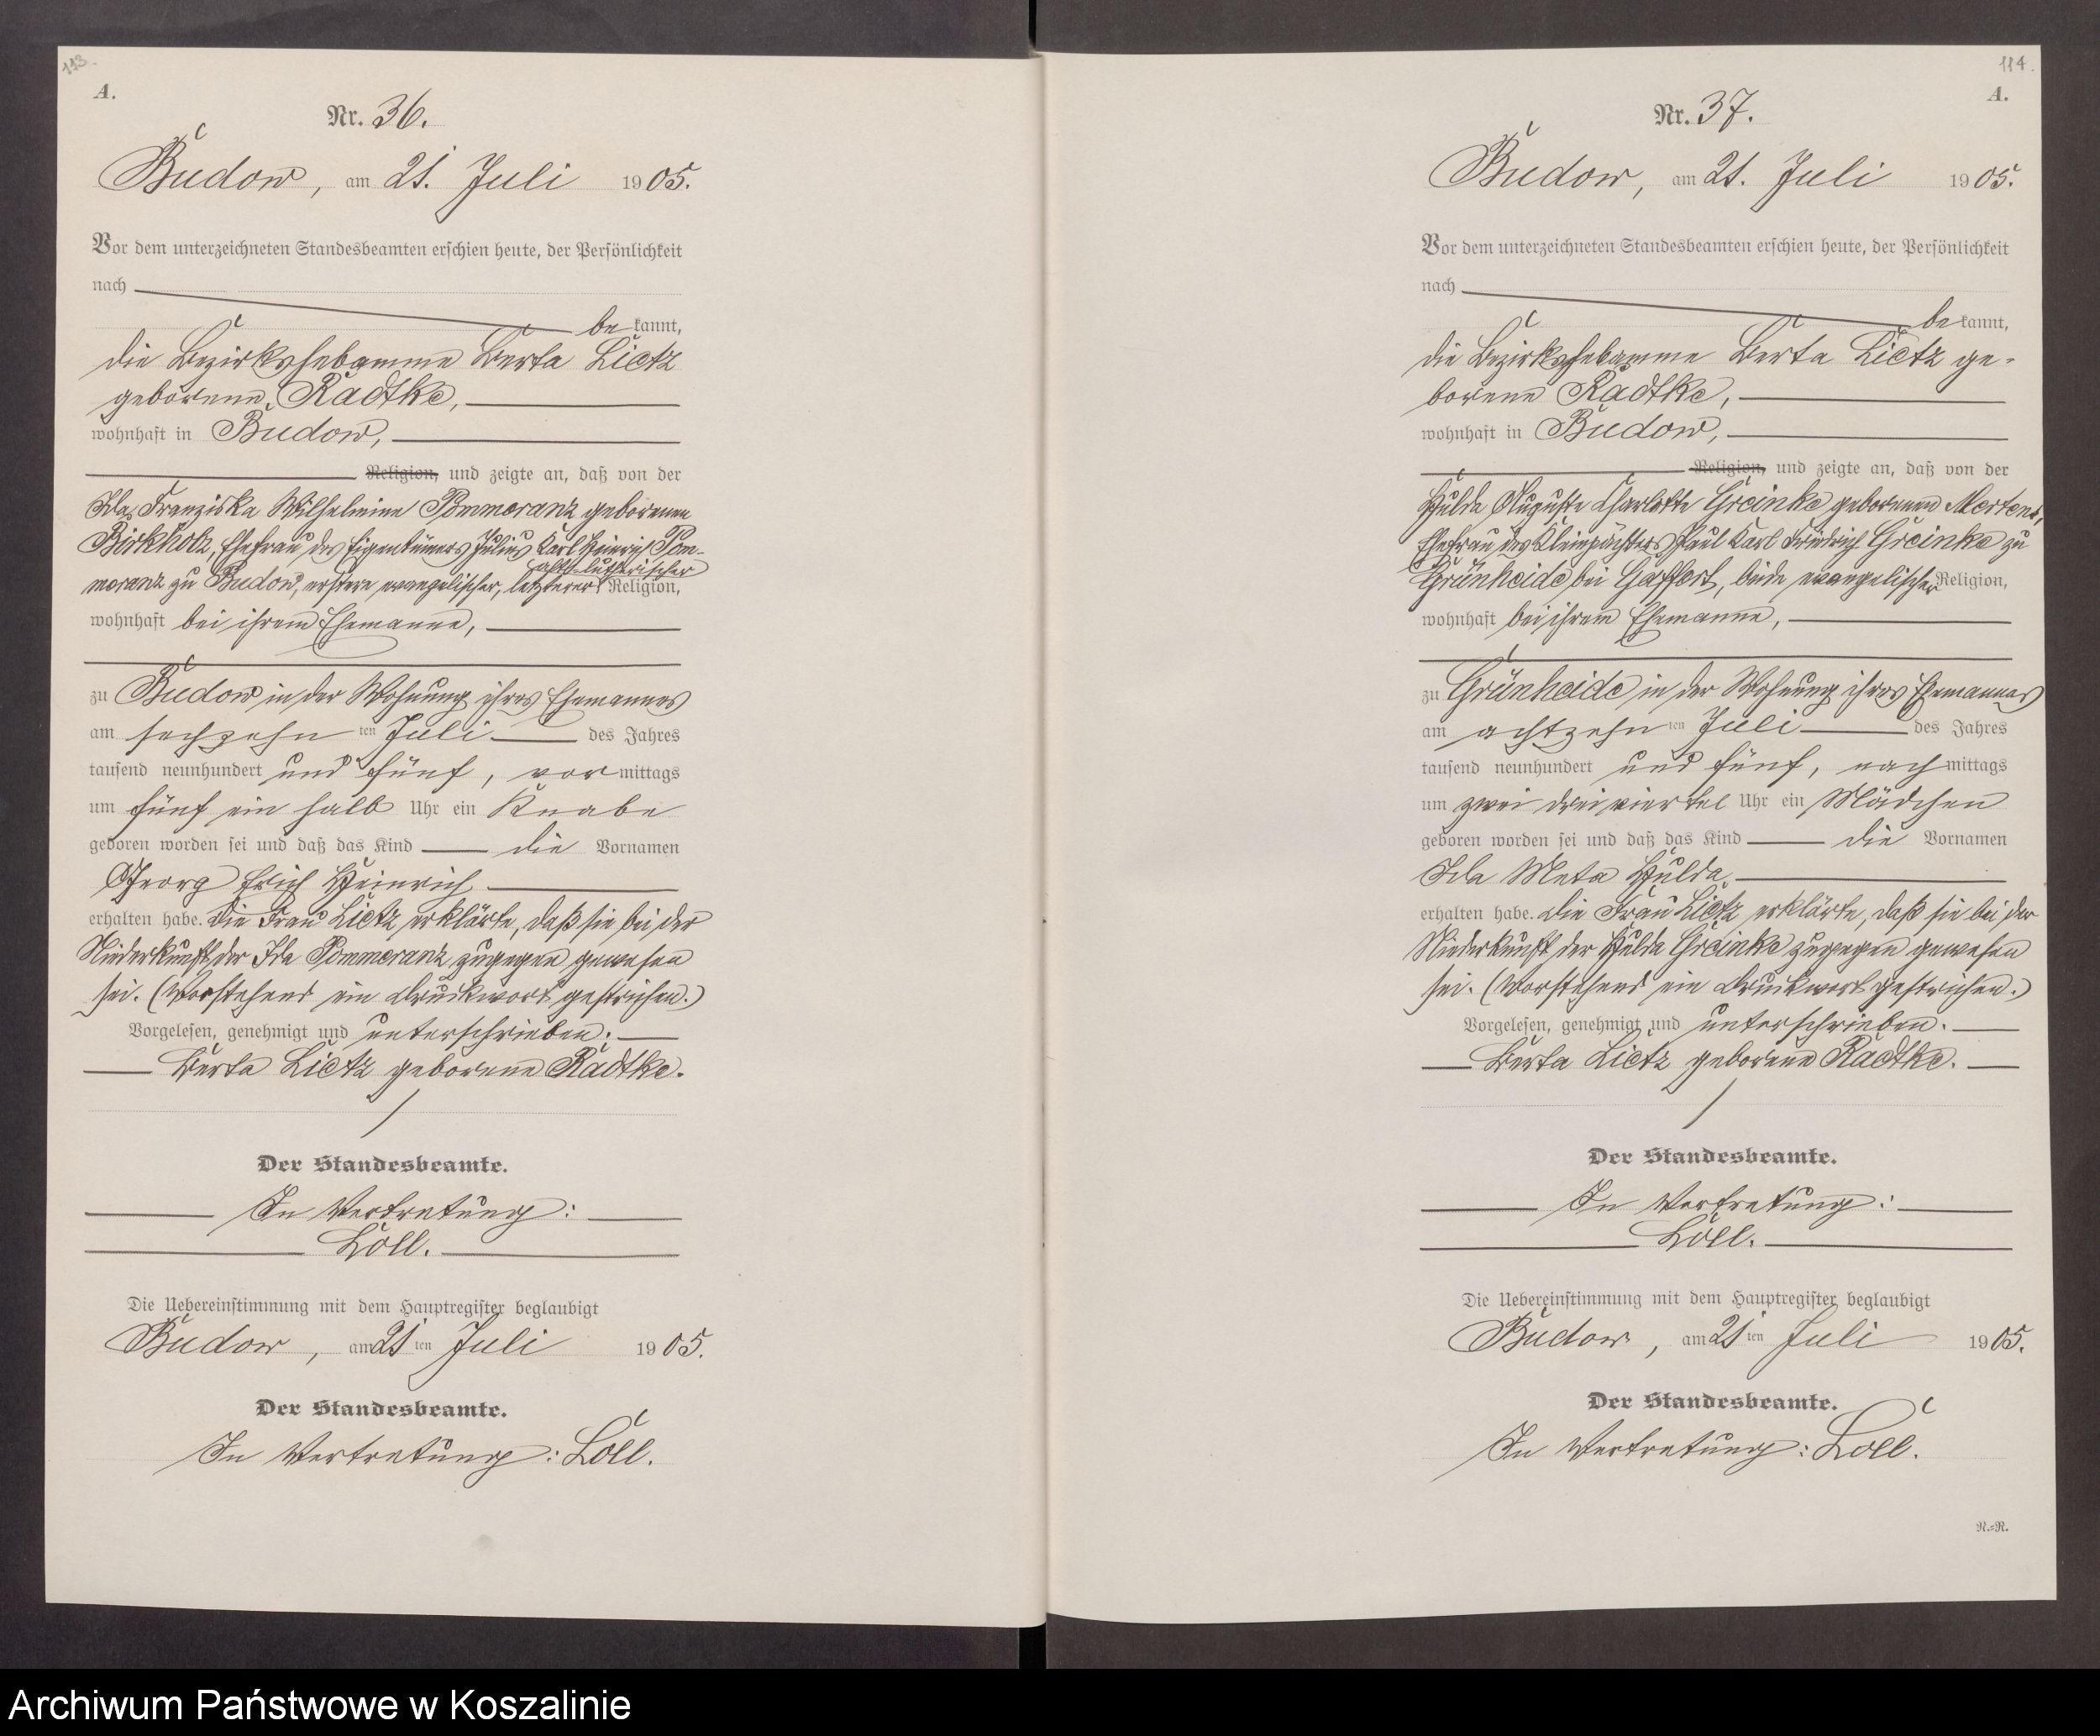 113.
A.
Nr. 36.
Budow, am 21. Juli 1905.
Vor dem unterzeichneten Standesbeamten erschien heute, der Persönlichkeit
nach
be kannt,
die Bezirkshebamme Berta Lietz
geborene Radtke,
wohnhaft in Budow,
Religion, und zeigte an, daß von der
Ida Franziska Wilhelmine Pommeranz geborenen
Birkholz, Ehefrau des Eigentümers Julius Karl Heinrich Pom-
alt-lutherischer
meranz zu Budow, erstere evangelischer, letzterer Religion,
wohnhaft bei ihrem Ehemanne,
zu Budow in der Wohnung ihres Ehemannes
am sechzehn ten Juli des Jahres
tausend neunhundert und fünf, vor mittags
um fünf ein halb Uhr ein Knabe
geboren worden sei und daß das Kind die Vornamen
Georg Erich Heinrich
erhalten habe. Die Frau Lietz erklärte, daß sie bei der
Niederkunft der Ida Pommeranz zugegen gewesen
sei. (Vorstehend ein Druckwort gestrichen.)
Vorgelesen, genehmigt und unterschrieben.
Berta Lietz geborene Radtke.
Der Standesbeamte.
In Vertretung:
Löll.
Die Uebereinstimmung mit dem Hauptregister beglaubigt
Budow, am 21 ten Juli 1905.
Der Standesbeamte.
In Vertretung: Löll.
114.
A.
Nr. 37.
Budow, am 21. Juli 1905.
Vor dem unterzeichneten Standesbeamten erschien heute, der Persönlichkeit
nach
be kannt,
die Bezirkshebamme Berta Lietz ge-
borene Radtke,
wohnhaft in Budow,
Religion, und zeigte an, daß von der
Hulda Auguste Charlotte Greinke geborenen Mertens,
Ehefrau des Kleinpächters Paul Karl Friedrich Greinke zu
Grünheide bei Gaffert, beide evangelischer Religion,
wohnhaft bei ihrem Ehemanne,
zu Grünheide in der Wohnung ihres Ehemannes
am achtzehn ten Juli des Jahres
tausend neunhundert und fünf, nach mittags
um zwei drei viertel Uhr ein Mädchen
geboren worden sei und daß das Kind die Vornamen
Ida Meta Hulda
erhalten habe. Die Frau Lietz erklärte, daß sie bei der
Niederkunft der Hulda Greinke zugegen gewesen
sei. (Vorstehend ein Druckwort gestrichen.)
Vorgelesen, genehmigt und unterschrieben.
Berta Lietz geborene Radtke.
Der Standesbeamte.
In Vertretung:
Löll.
Die Uebereinstimmung mit dem Hauptregister beglaubigt
Budow, am 21 ten Juli 1905.
Der Standesbeamte.
In Vertretung: Löll.
N.=N.
Archiwum Państwowe w Koszalinie